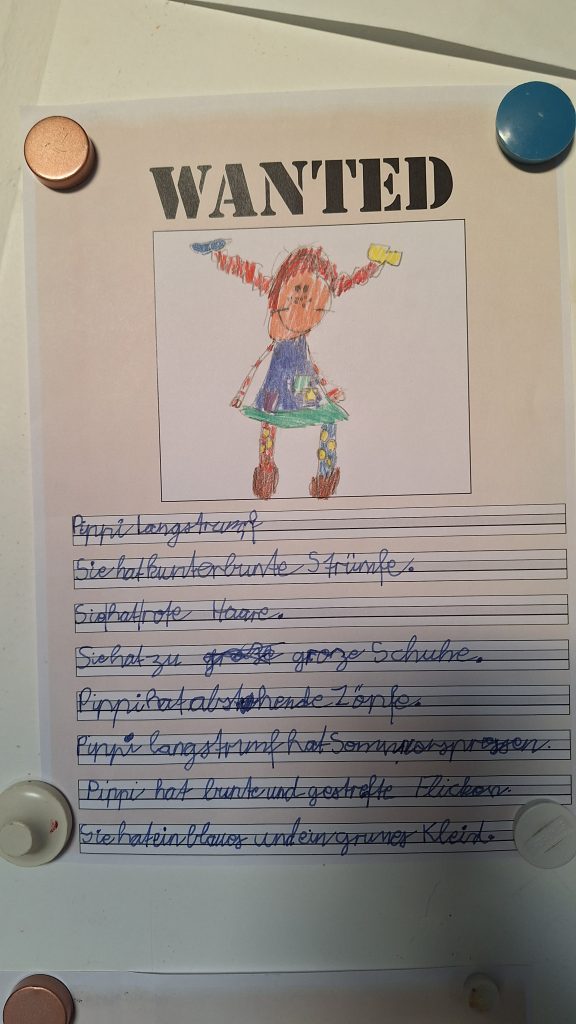 WANTED
Pippi langstrumf
Sie hat kunterbunte Strümfe.
Sie hat rote Haare.
Sie hat zu große Schuhe.
Pippi hat abstehende Zöpfe.
Pippi langstrumf hat Sommersprossen.
Pippi hat bunte und gestreifte Flicken.
Sie hat ein blaues und ein grunes Kleid.